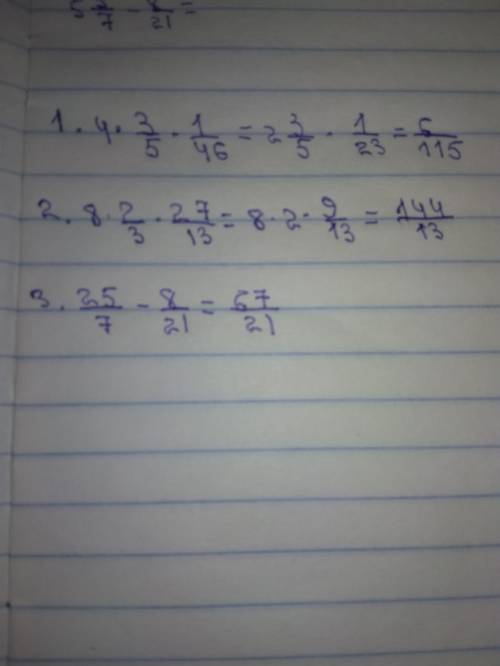 1. 4 · 3/5 · 1/46 = 2 3/5 · 1/23 = 6/115
2. 8 · 2/3 · 27/13 = 8 · 2 · 9/13 = 144/13
3. 25/7 - 8/21 = 67/21